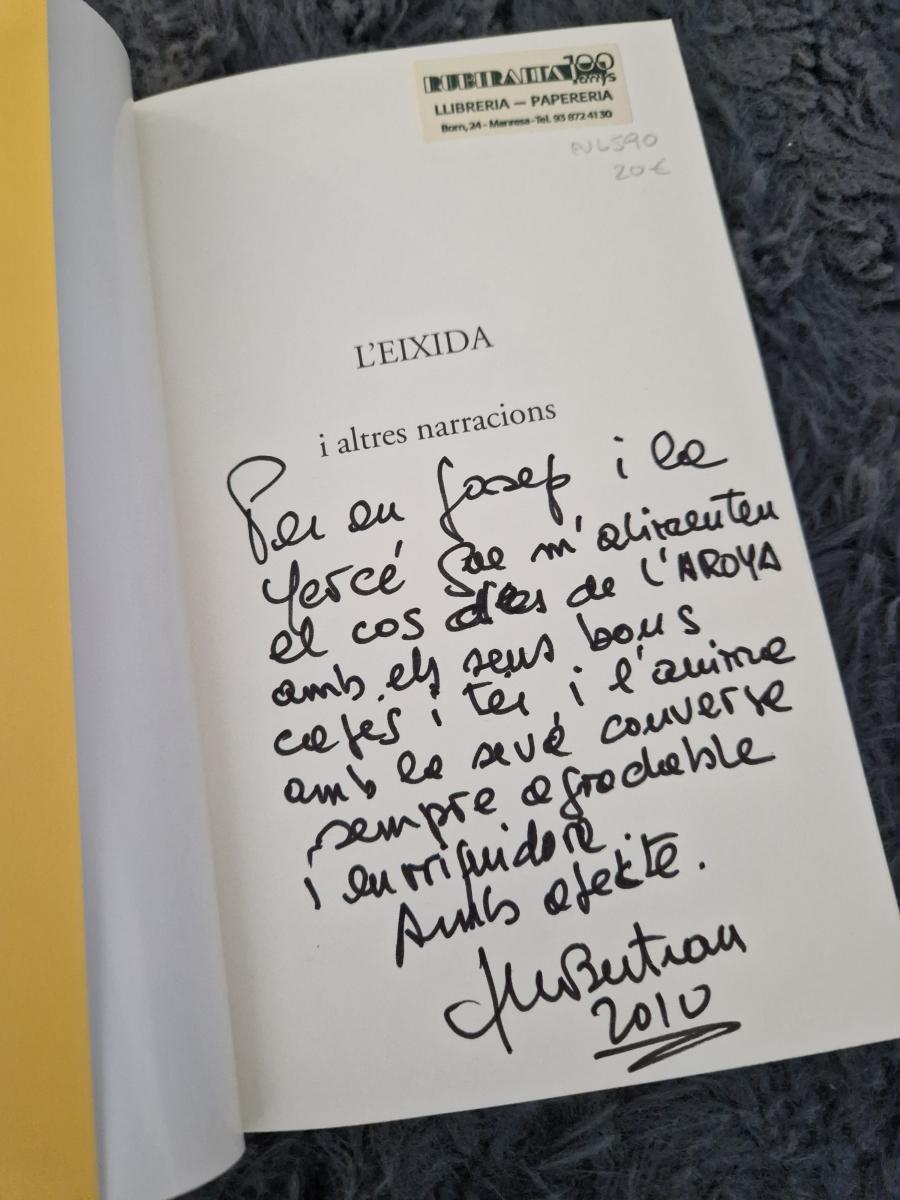 RUBIRALTA 100 anys
LLIBRERIA – PAPERERIA
Born, 24 - Manresa - Tel. 93 872 41 30
NL590
20 €
L'EIXIDA
i altres narracions
Per en Josep i la
Mercé que m'alimenten
el cos des de l'AROYA
amb els seus bons
cafes i tés i l'anima
amb la seva converse
sempre agradable
i enrriquidora.
Amb afekte.
Bertran
2010